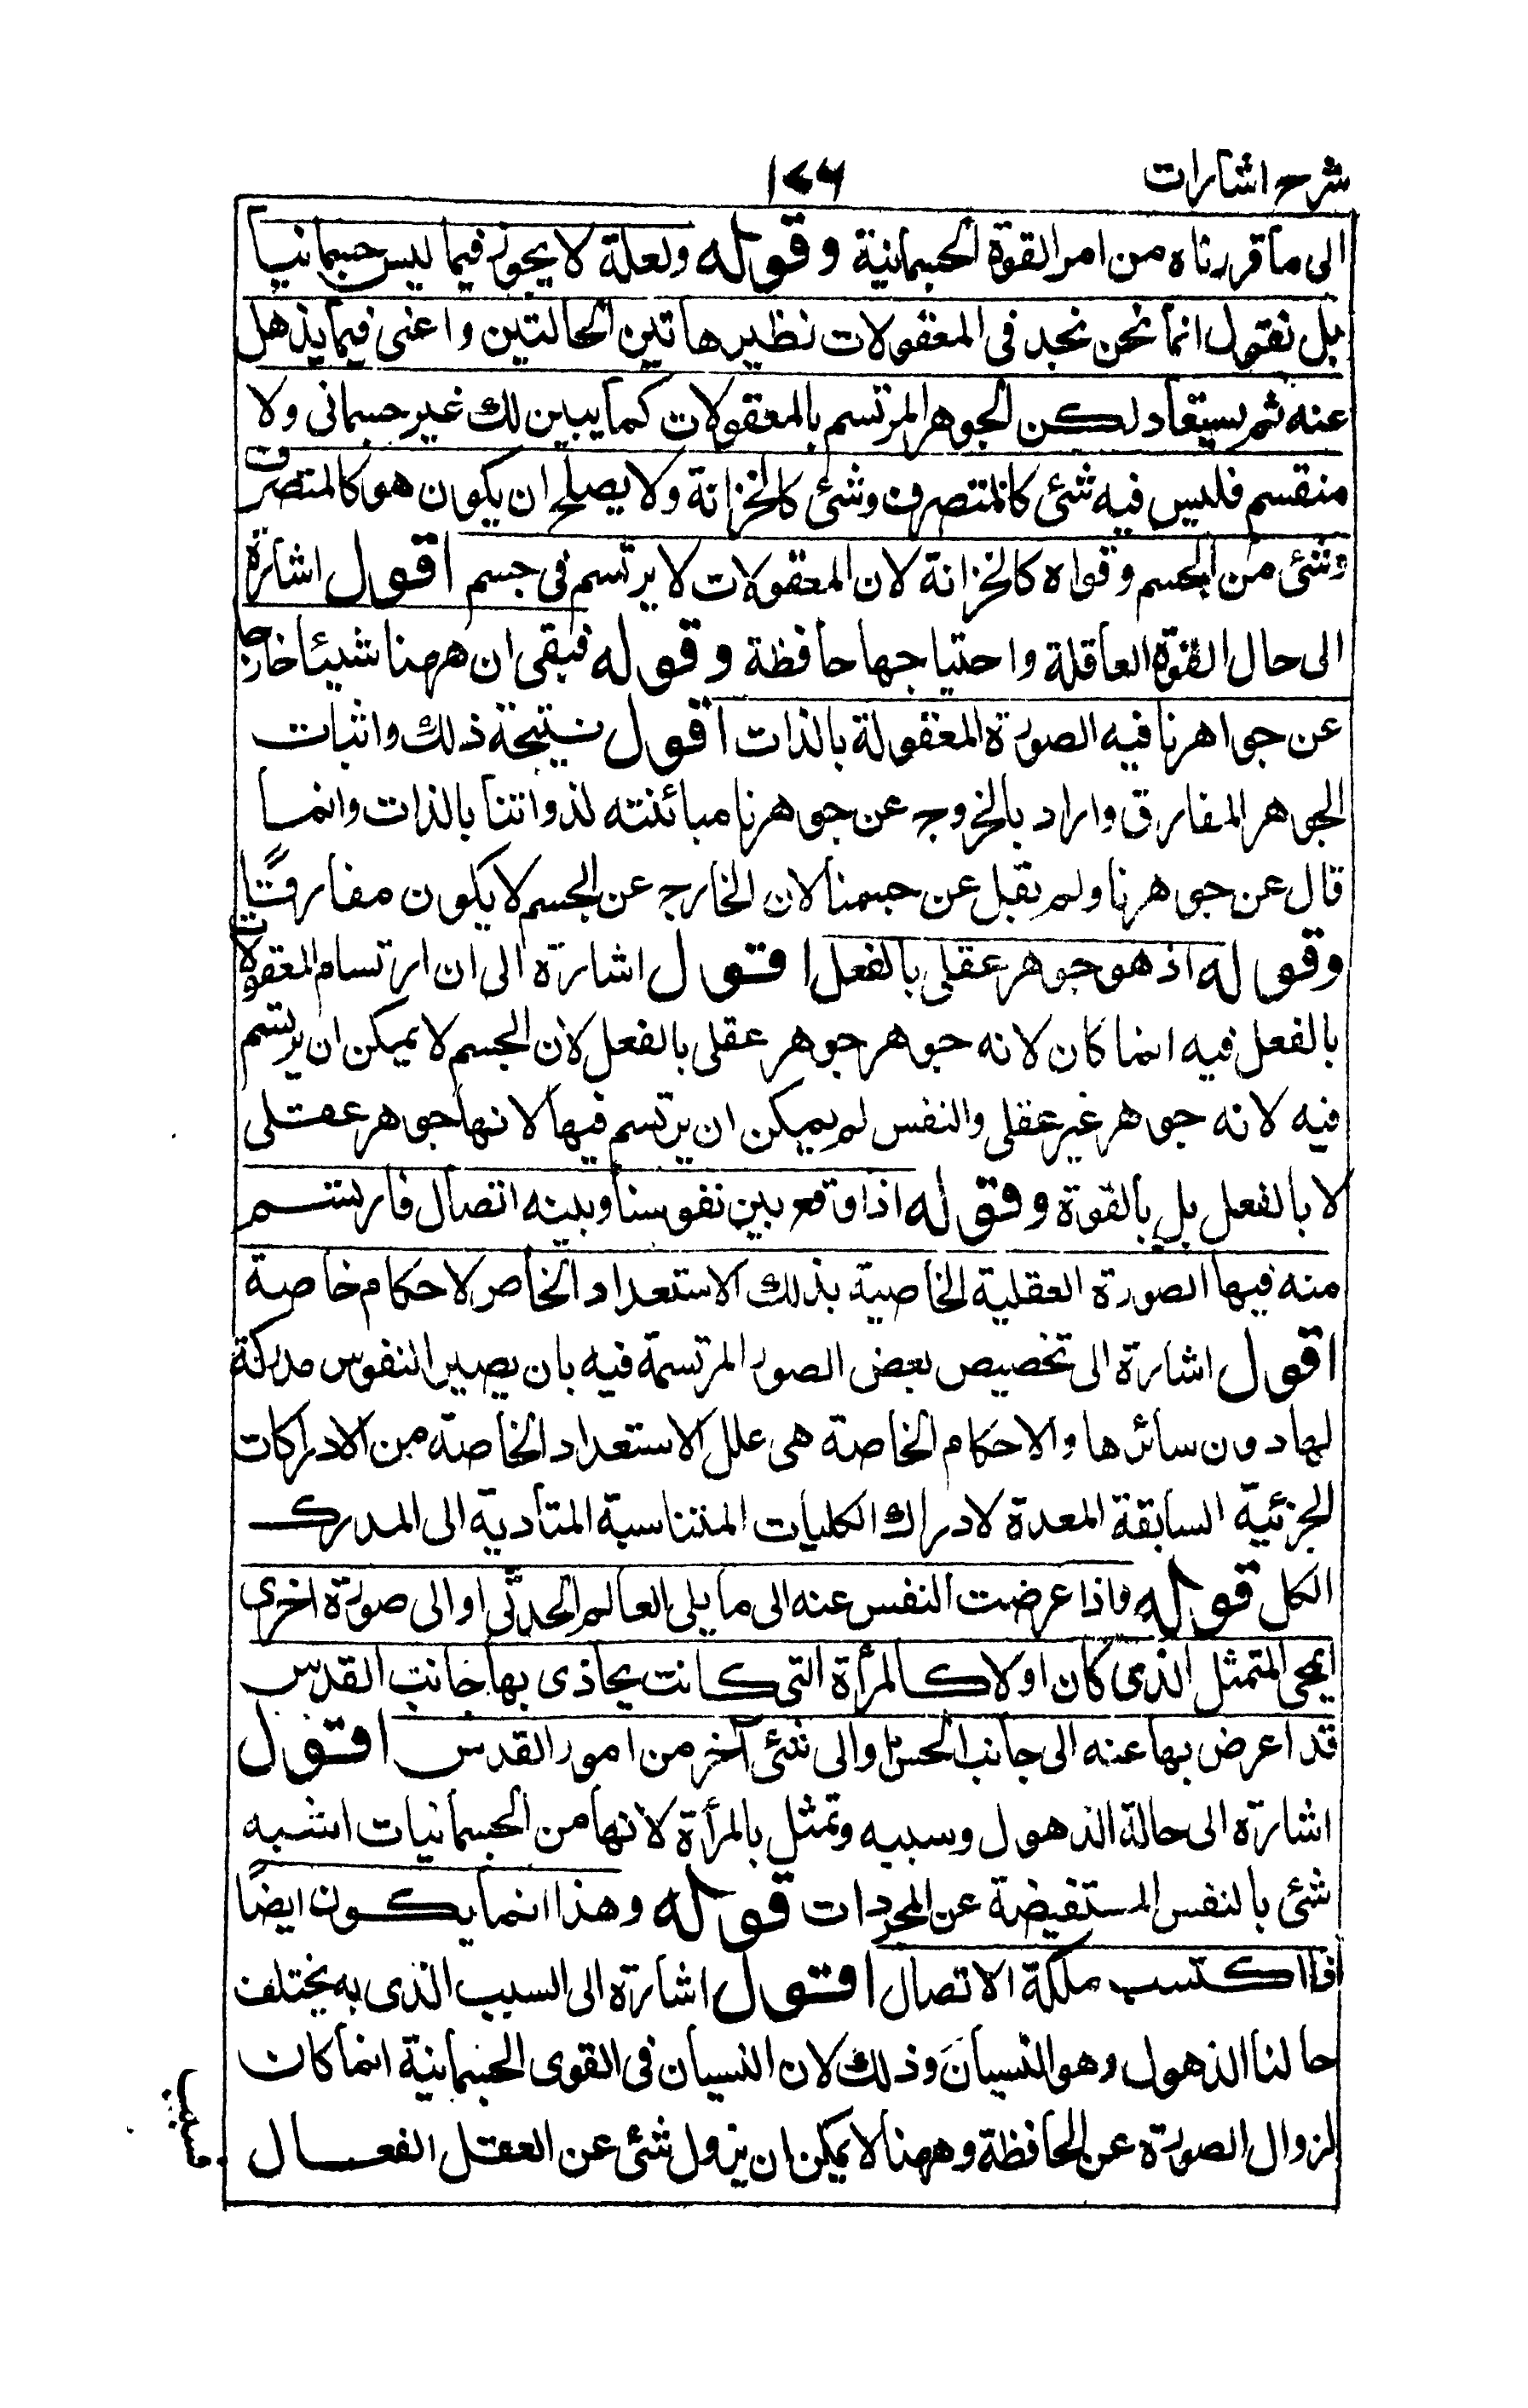 شرح اشارات ١٧٦
الى ما قررناه من امر القوة الجسمانية وقوله ولعلة لا يجوز فيما ليس جسمانيا
بل نقول انما نحن نجد فى المعقولات نظير هاتين الحالتين واعنى فيما يذهل
عنه ثم يستعاد لكن الجوهر المرتسم بالمعقولات كما يبين لك غير جسمانى ولا
منقسم فليس فيه شئ كالمتصرف وشئ كالخزانة ولا يصلح ان يكون هو كالمتصرف
وشئ من الجسم وقواه كالخزانة لان المعقولات لا يرتسم فى جسم اقول اشارة
الى حال القوة العاقلة واحتياجها حافظة وقوله فبقى ان ههنا شيئا خارجا
عن جواهرنا فيه الصورة المعقولة بالذات اقول نتيجة ذلك واثبات
الجوهر المفارق واراد بالخروج عن جوهرنا مبائنته لذواتنا بالذات وانما
قال عن جوهرنا ولم يقل عن جسمنا لان الخارج عن الجسم لا يكون مفارقتًا
وقوله اذ هو جوهر عقلى بالفعل اقول اشارة الى ان ارتسام المعقولات
بالفعل فيه انما كان لانه جوهر جوهر عقلى بالفعل لان الجسم لا يمكن ان يرتسم
فيه لانه جوهر غير عقلى والنفس لم يمكن ان يرتسم فيها لانها جوهر عقلى
لا بالفعل بل بالقوة وقوله اذا وقع بين نفوسنا وبينه اتصال فارتسم
منه فيها الصورة العقلية الخاصية بذلك الاستعداد الخاص لاحكام خاصة
اقول اشارة الى تخصيص بعض الصور المرتسمة فيه بان يصير النفوس مدركة
لها دون سائرها والاحكام الخاصة هى علل الاستعداد الخاصة من الادراكات
الجزئية السابقة المعدة لادراك الكليات المتناسبة المتأدية الى المدرك
الكل قوله واذا عرضت النفس عنه الى ما يلى العالم الجدثى او الى صورة اخرى
انمحى المتمثل الذى كان اولا كالمرأة التى كانت يحاذى بها جانب القدس
قد اعرض بها عنه الى جانب الحس او الى شئ آخر من امور القدس اقول
اشارة الى حالة الذهول وسببه وتمثل بالمرأة لانها من الجسمانيات اشبه
شئ بالنفس المستفيضة عن المجردات قوله وهذا انما يكون ايضًا
اذا اكتسب ملكة الاتصال اقول اشارة الى السبب الذى به يختلف
حالنا الذهول وهو النسيانَ وذلك لان النسيان فى القوى الجسمانية انما كان
لزوال الصورة عن الحافظة وههنا لا يمكن ان يزول شئ عن العقل الفعال